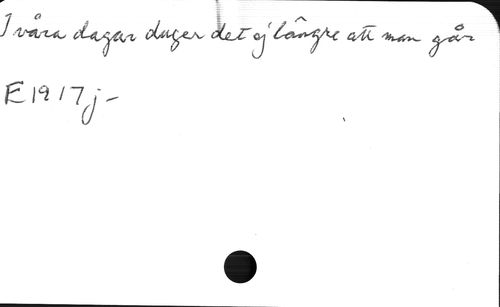 I våra dagar duger det ej längre att man går
E1917j-